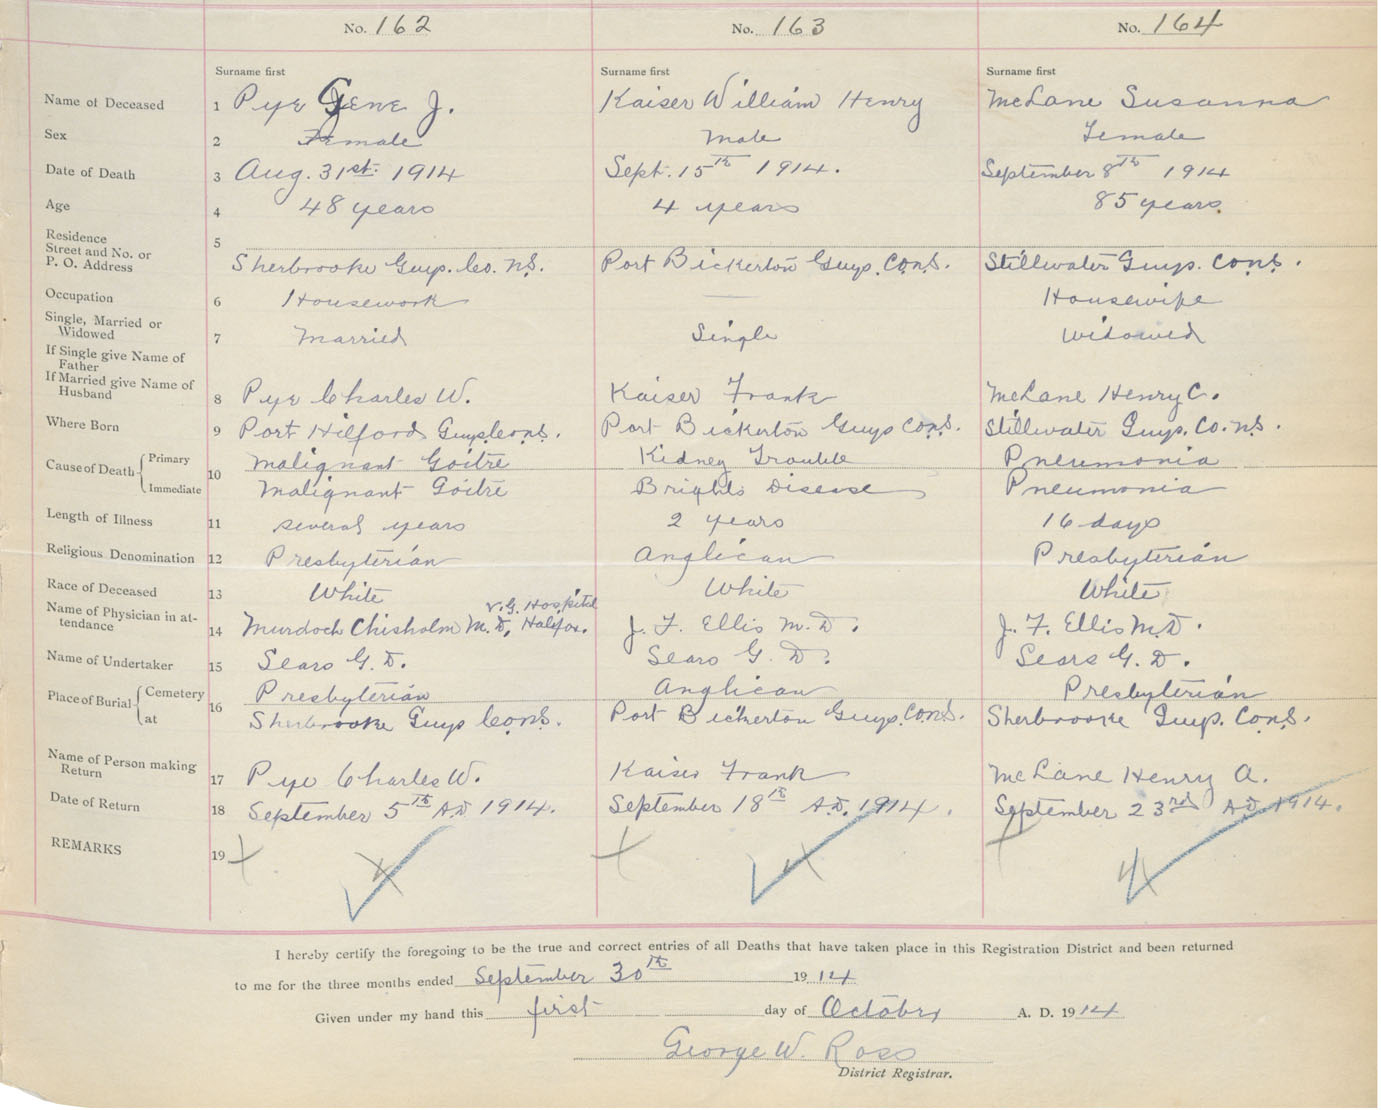 No. 162 No. 163 No. 164
Surname first Surname first Surname first
Name of Deceased 1 Pye Gene J. Kaiser William Henry McLane Susanna
Sex 2 Female Male Female
Date of Death 3 Aug. 31st. 1914 Sept. 15th 1914. September 8th 1914
Age 4 48 years 4 years 85 years.
Residence
Street and No. or
P. O. Address 5 Sherbrooke Guys. Co. N.S. Port Bickerton Guys. Co. N.S. Stillwater Guys. Co. N.S.
Occupation 6 Housework — Housewife
Single, Married or
Widowed 7 Married Single Widowed
If Single give Name of
Father
If Married give Name of
Husband 8 Pye Charles W. Kaiser Frank McLane Henry C.
Where Born 9 Port Hilford Guys. Co. N.S. Port Bickerton Guys Co. N.S. Stillwater Guys. Co. N.S.
Cause of Death Primary 10 Malignant Goitre Kidney Trouble Pneumonia
Immediate Malignant Goitre Brights Disease Pneumonia
Length of Illness 11 several years 2 years 16 days
Religious Denomination 12 Presbyterian Anglican Presbyterian
Race of Deceased 13 White White White
V. G. Hospital
Name of Physician in at-
tendance 14 Murdoch Chisholm M. D, Halifax. J. F. Ellis M. D. J. F. Ellis M.D.
Name of Undertaker 15 Sears G. D. Sears G. D. Sears G. D.
Place of Burial Cemetery 16 Presbyterian Anglican Presbyterian
at Sherbrooke Guys Co. N.S. Port Bickerton Guys. Co. N.S. Sherbrooke Guys. Co. N.S.
Name of Person making
Return 17 Pye Charles W. Kaiser Frank McLane Henry A.
Date of Return 18 September 5th A.D 1914. September 18th A.D. 1914. September 23rd A.D. 1914.
REMARKS 19
I hereby certify the foregoing to be the true and correct entries of all Deaths that have taken place in this Registration District and been returned
to me for the three months ended September 30th 1914
Given under my hand this first day of October A. D. 1914
George W. Ross
District Registrar.